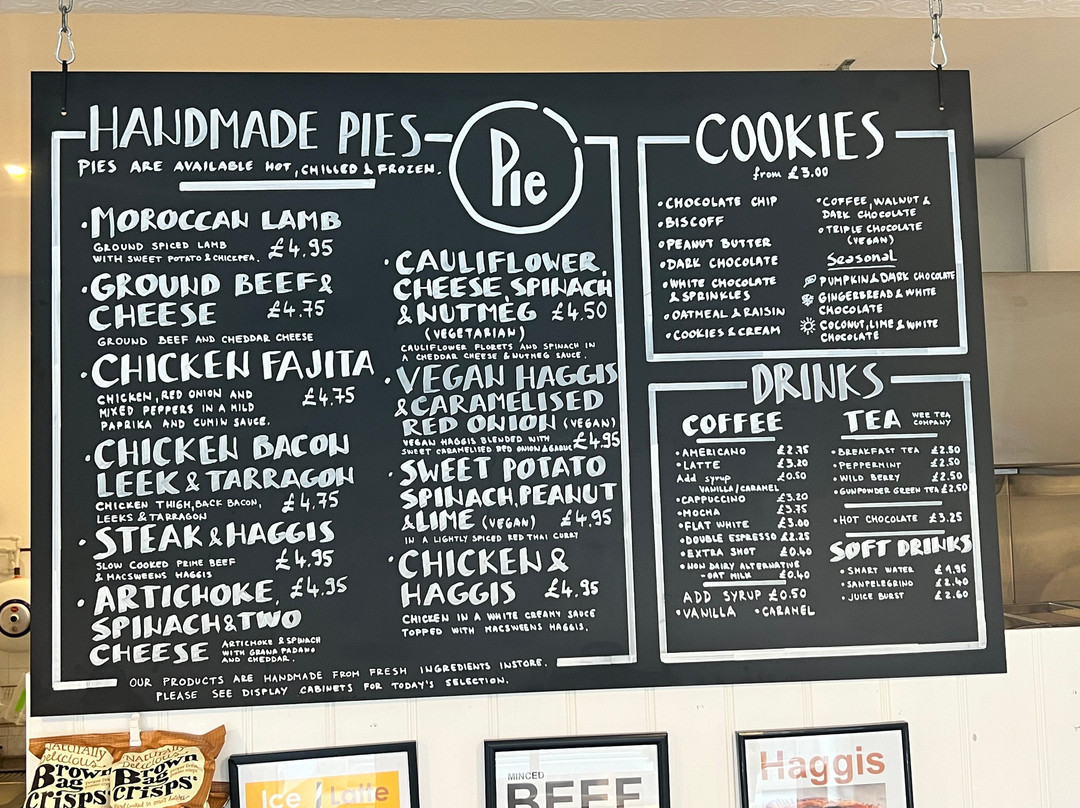 HANDMADE PIES
PIES ARE AVAILABLE HOT, CHILLED & FROZEN.
Pie
• MOROCCAN LAMB
GROUND SPICED LAMB
WITH SWEET POTATO & CHICKPEA. £4.95
• GROUND BEEF &
CHEESE £4.75
GROUND BEEF AND CHEDDAR CHEESE
• CHICKEN FAJITA
CHICKEN, RED ONION AND £4.75
MIXED PEPPERS IN A MILD
PAPRIKA AND CUMIN SAUCE.
• CHICKEN BACON
LEEK & TARRAGON
CHICKEN THIGH, BACK BACON, £4.75
LEEKS & TARRAGON
• STEAK & HAGGIS
SLOW COOKED PRIME BEEF £4.95
& MACSWEENS HAGGIS
• ARTICHOKE, £4.95
SPINACH & TWO
CHEESE ARTICHOKE & SPINACH
WITH GRANA PADANO
AND CHEDDAR.
• CAULIFLOWER,
CHEESE, SPINACH
& NUTMEG £4.50
(VEGETARIAN)
CAULIFLOWER FLORETS AND SPINACH IN
A CHEDDAR CHEESE & NUTMEG SAUCE.
• VEGAN HAGGIS
& CARAMELISED
RED ONION (VEGAN)
VEGAN HAGGIS BLENDED WITH £4.95
SWEET CARAMELISED RED ONION & GARLIC
• SWEET POTATO
SPINACH, PEANUT
& LIME (VEGAN) £4.95
IN A LIGHTLY SPICED RED THAI CURRY
• CHICKEN &
HAGGIS £4.95
CHICKEN IN A WHITE CREAMY SAUCE
TOPPED WITH MACSWEENS HAGGIS.
OUR PRODUCTS ARE HANDMADE FROM FRESH INGREDIENTS INSTORE.
PLEASE SEE DISPLAY CABINETS FOR TODAY'S SELECTION.
COOKIES
from £3.00
• CHOCOLATE CHIP
• BISCOFF
• PEANUT BUTTER
• DARK CHOCOLATE
• WHITE CHOCOLATE
& SPRINKLES
• OATMEAL & RAISIN
• COOKIES & CREAM
• COFFEE, WALNUT &
DARK CHOCOLATE
• TRIPLE CHOCOLATE
(VEGAN)
Seasonal
PUMPKIN & DARK CHOCOLATE
GINGERBREAD & WHITE
CHOCOLATE
COCONUT, LIME & WHITE
CHOCOLATE
DRINKS
COFFEE
• AMERICANO £2.75
• LATTE £3.20
Add syrup £0.50
VANILLA/CARAMEL
• CAPPUCCINO £3.20
• MOCHA £3.75
• FLAT WHITE £3.00
• DOUBLE ESPRESSO £2.25
• EXTRA SHOT £0.40
• NON DAIRY ALTERNATIVE
- OAT MILK £0.40
ADD SYRUP £0.50
• VANILLA • CARAMEL
TEA WEE TEA
COMPANY
• BREAKFAST TEA £2.50
• PEPPERMINT £2.50
• WILD BERRY £2.50
• GUNPOWDER GREEN TEA £2.50
• HOT CHOCOLATE £3.25
SOFT DRINKS
• SMART WATER £1.95
• SANPELEGRINO £2.40
• JUICE BURST £2.60
NATURALLY
Delicious
Brown
Bag
CRISPS
NATURALLY
Delicious
Brown
Bag
CRISPS
Ice Latte
MINCED
BEEF
Haggis